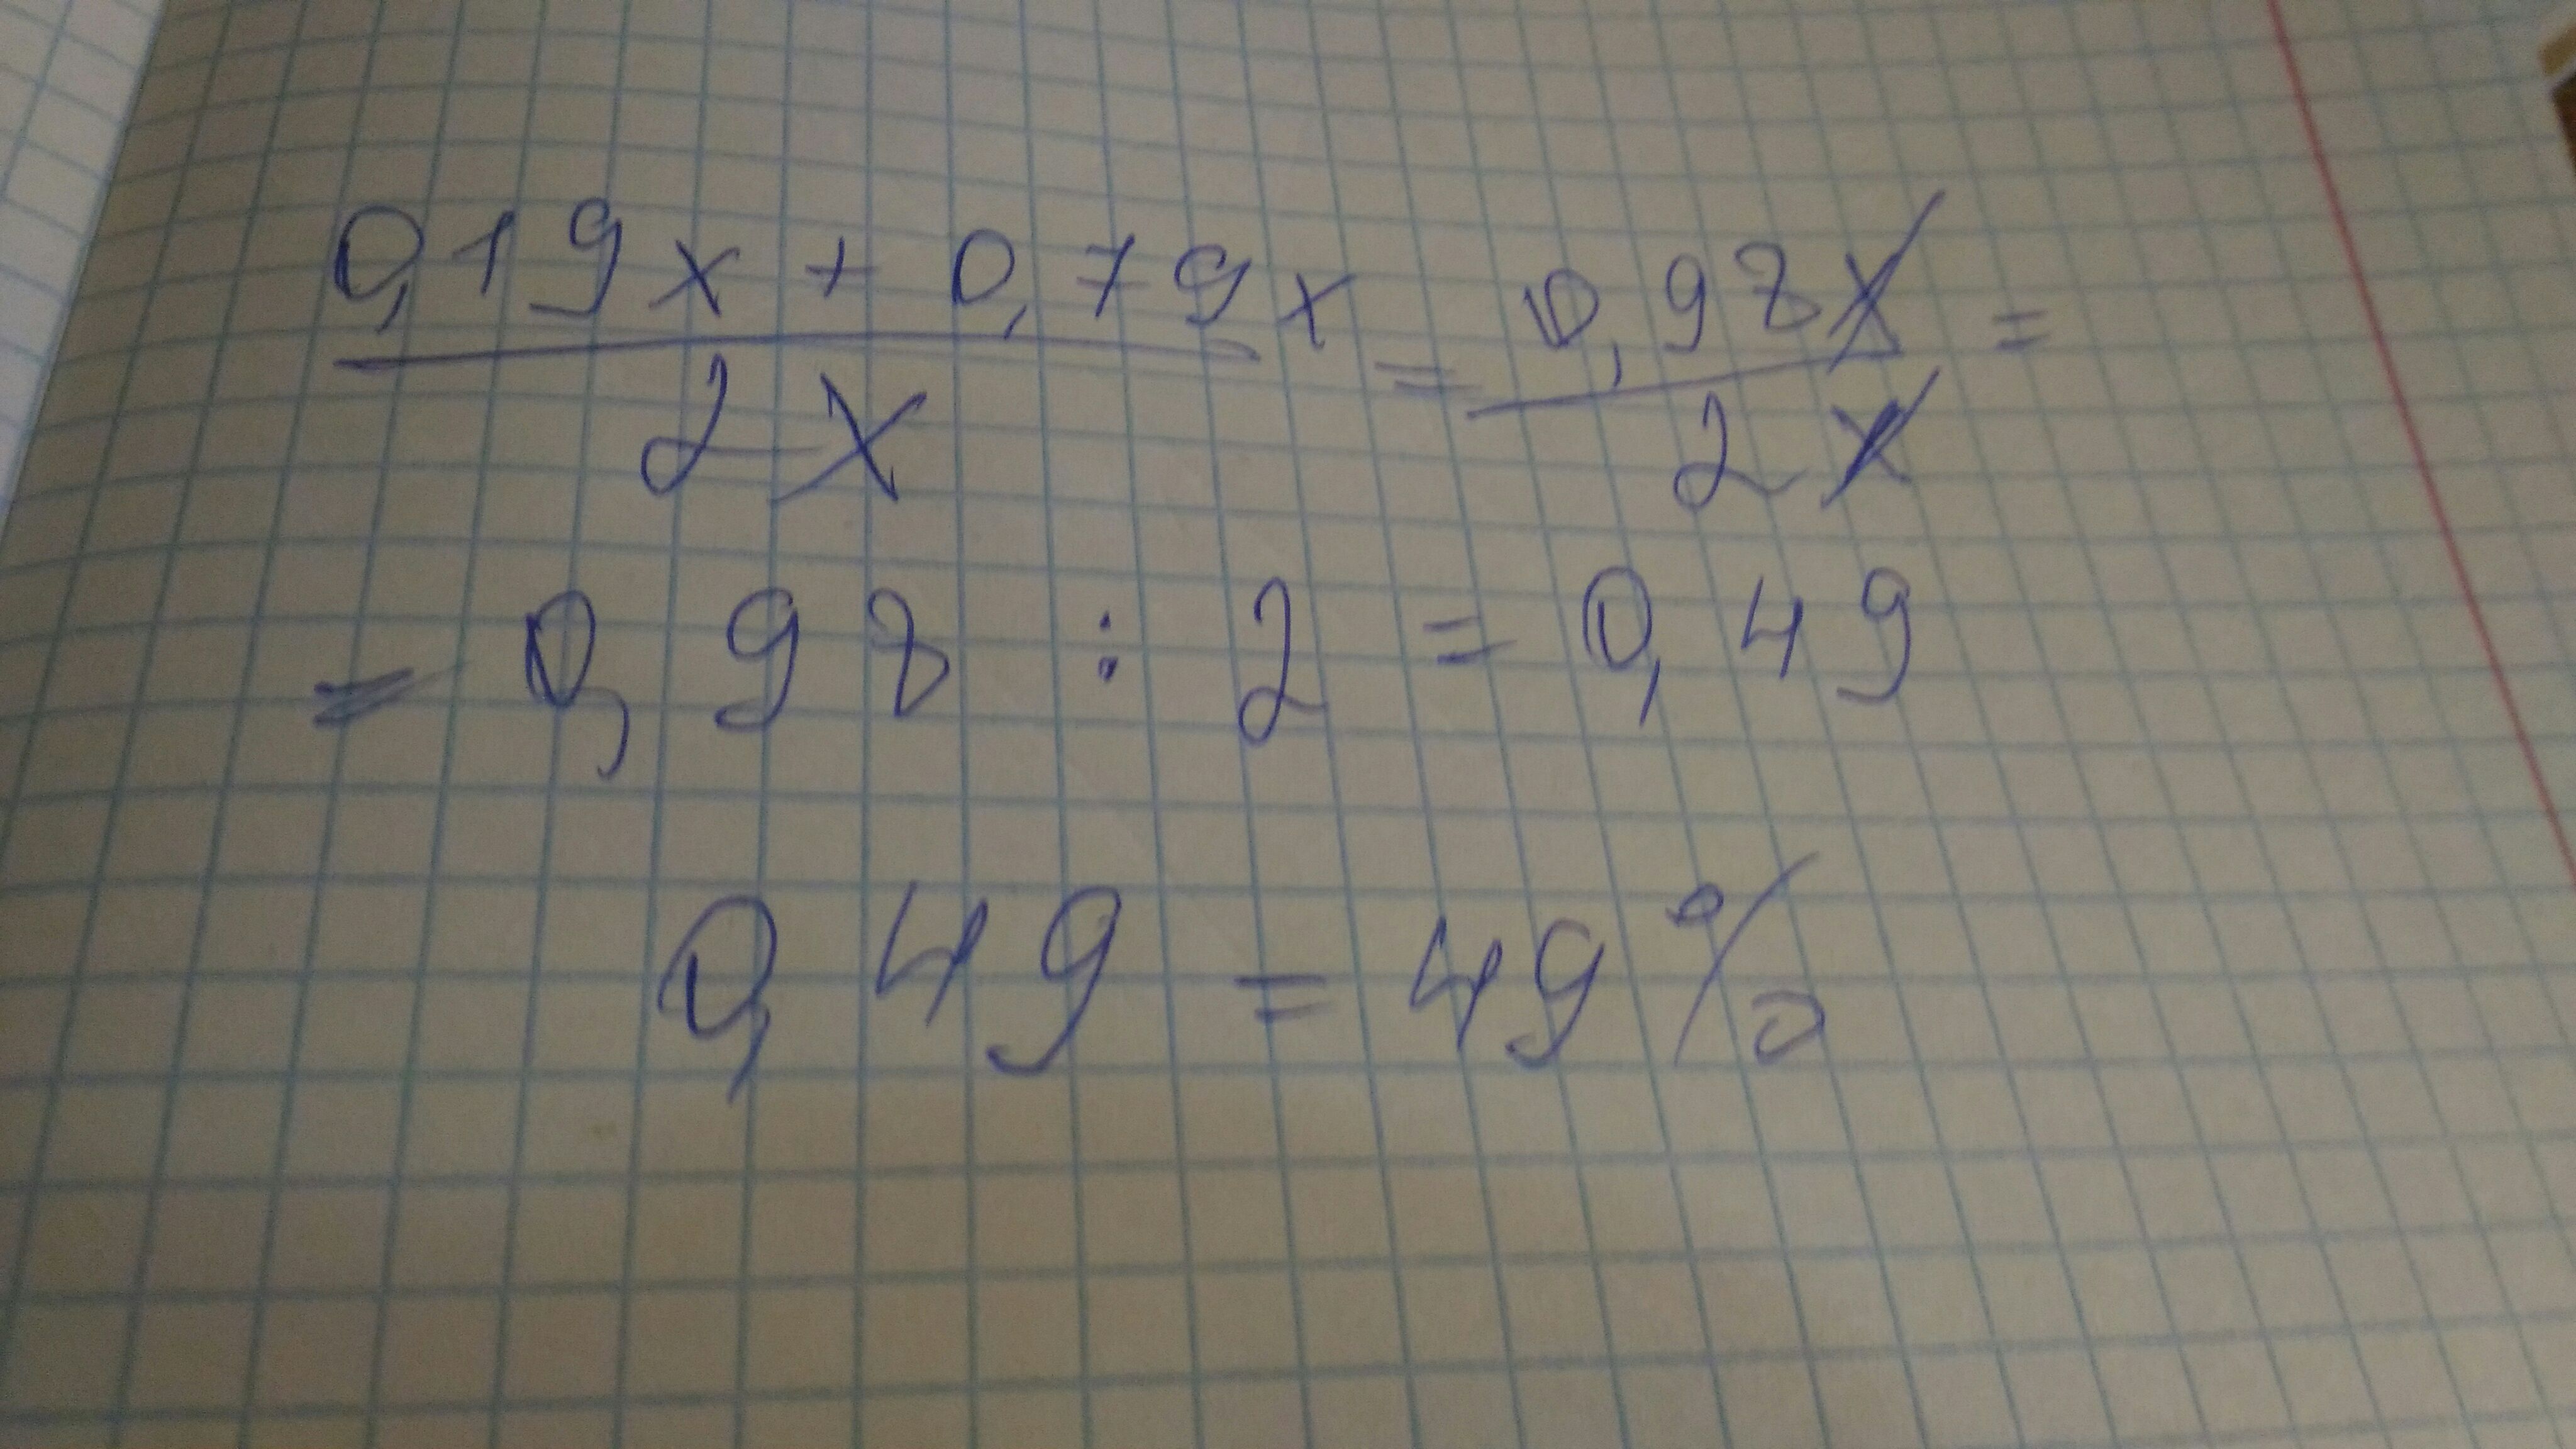 (0,19x + 0,79x)/2x = 0,98x/2x =
= 0,98 : 2 = 0,49
0,49 = 49%